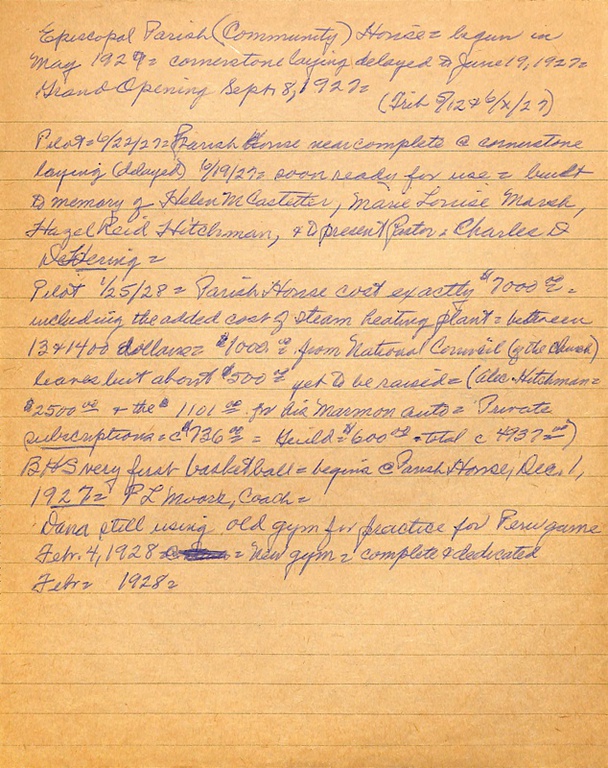 Episcopal Parish (Community) House = begun in
May 1927 = cornerstone laying delayed to June 19, 1927 =
Grand Opening Sept 8, 1927 =
(Trib 5/12 & 6/ /27)
Pilot = 6/22/27 = Parish House near complete @ cornerstone
laying (delayed) 6/19/27 = soon ready for use = built
to memory of Helen McCastetter, Marie Louise Marsh,
Hazel Reid Hitchman, & to present Pastor = Charles D
=
Pilot 1/25/28 = Parish House cost exactly $7000 00 =
including the added cost of steam heating plant = between
13 & 1400 dollars = $1000 00 from National Council (of the church)
leaves but about $500 00 yet to be raised = (Alec Hitchman =
$2500 00 & the $1101 00 for his Marmon auto = Private
subscriptions = c $736 00 = Guild = $600 00 = total c 4937 00)
BHS very first basketball = begins @ Parish House, Dec. 1,
1927 = P L Moore, Coach =
Dana still using old gym for practice for Peru game
Febr. 4, 1928 = = New gym = complete & dedicated
Febr = 1928 =